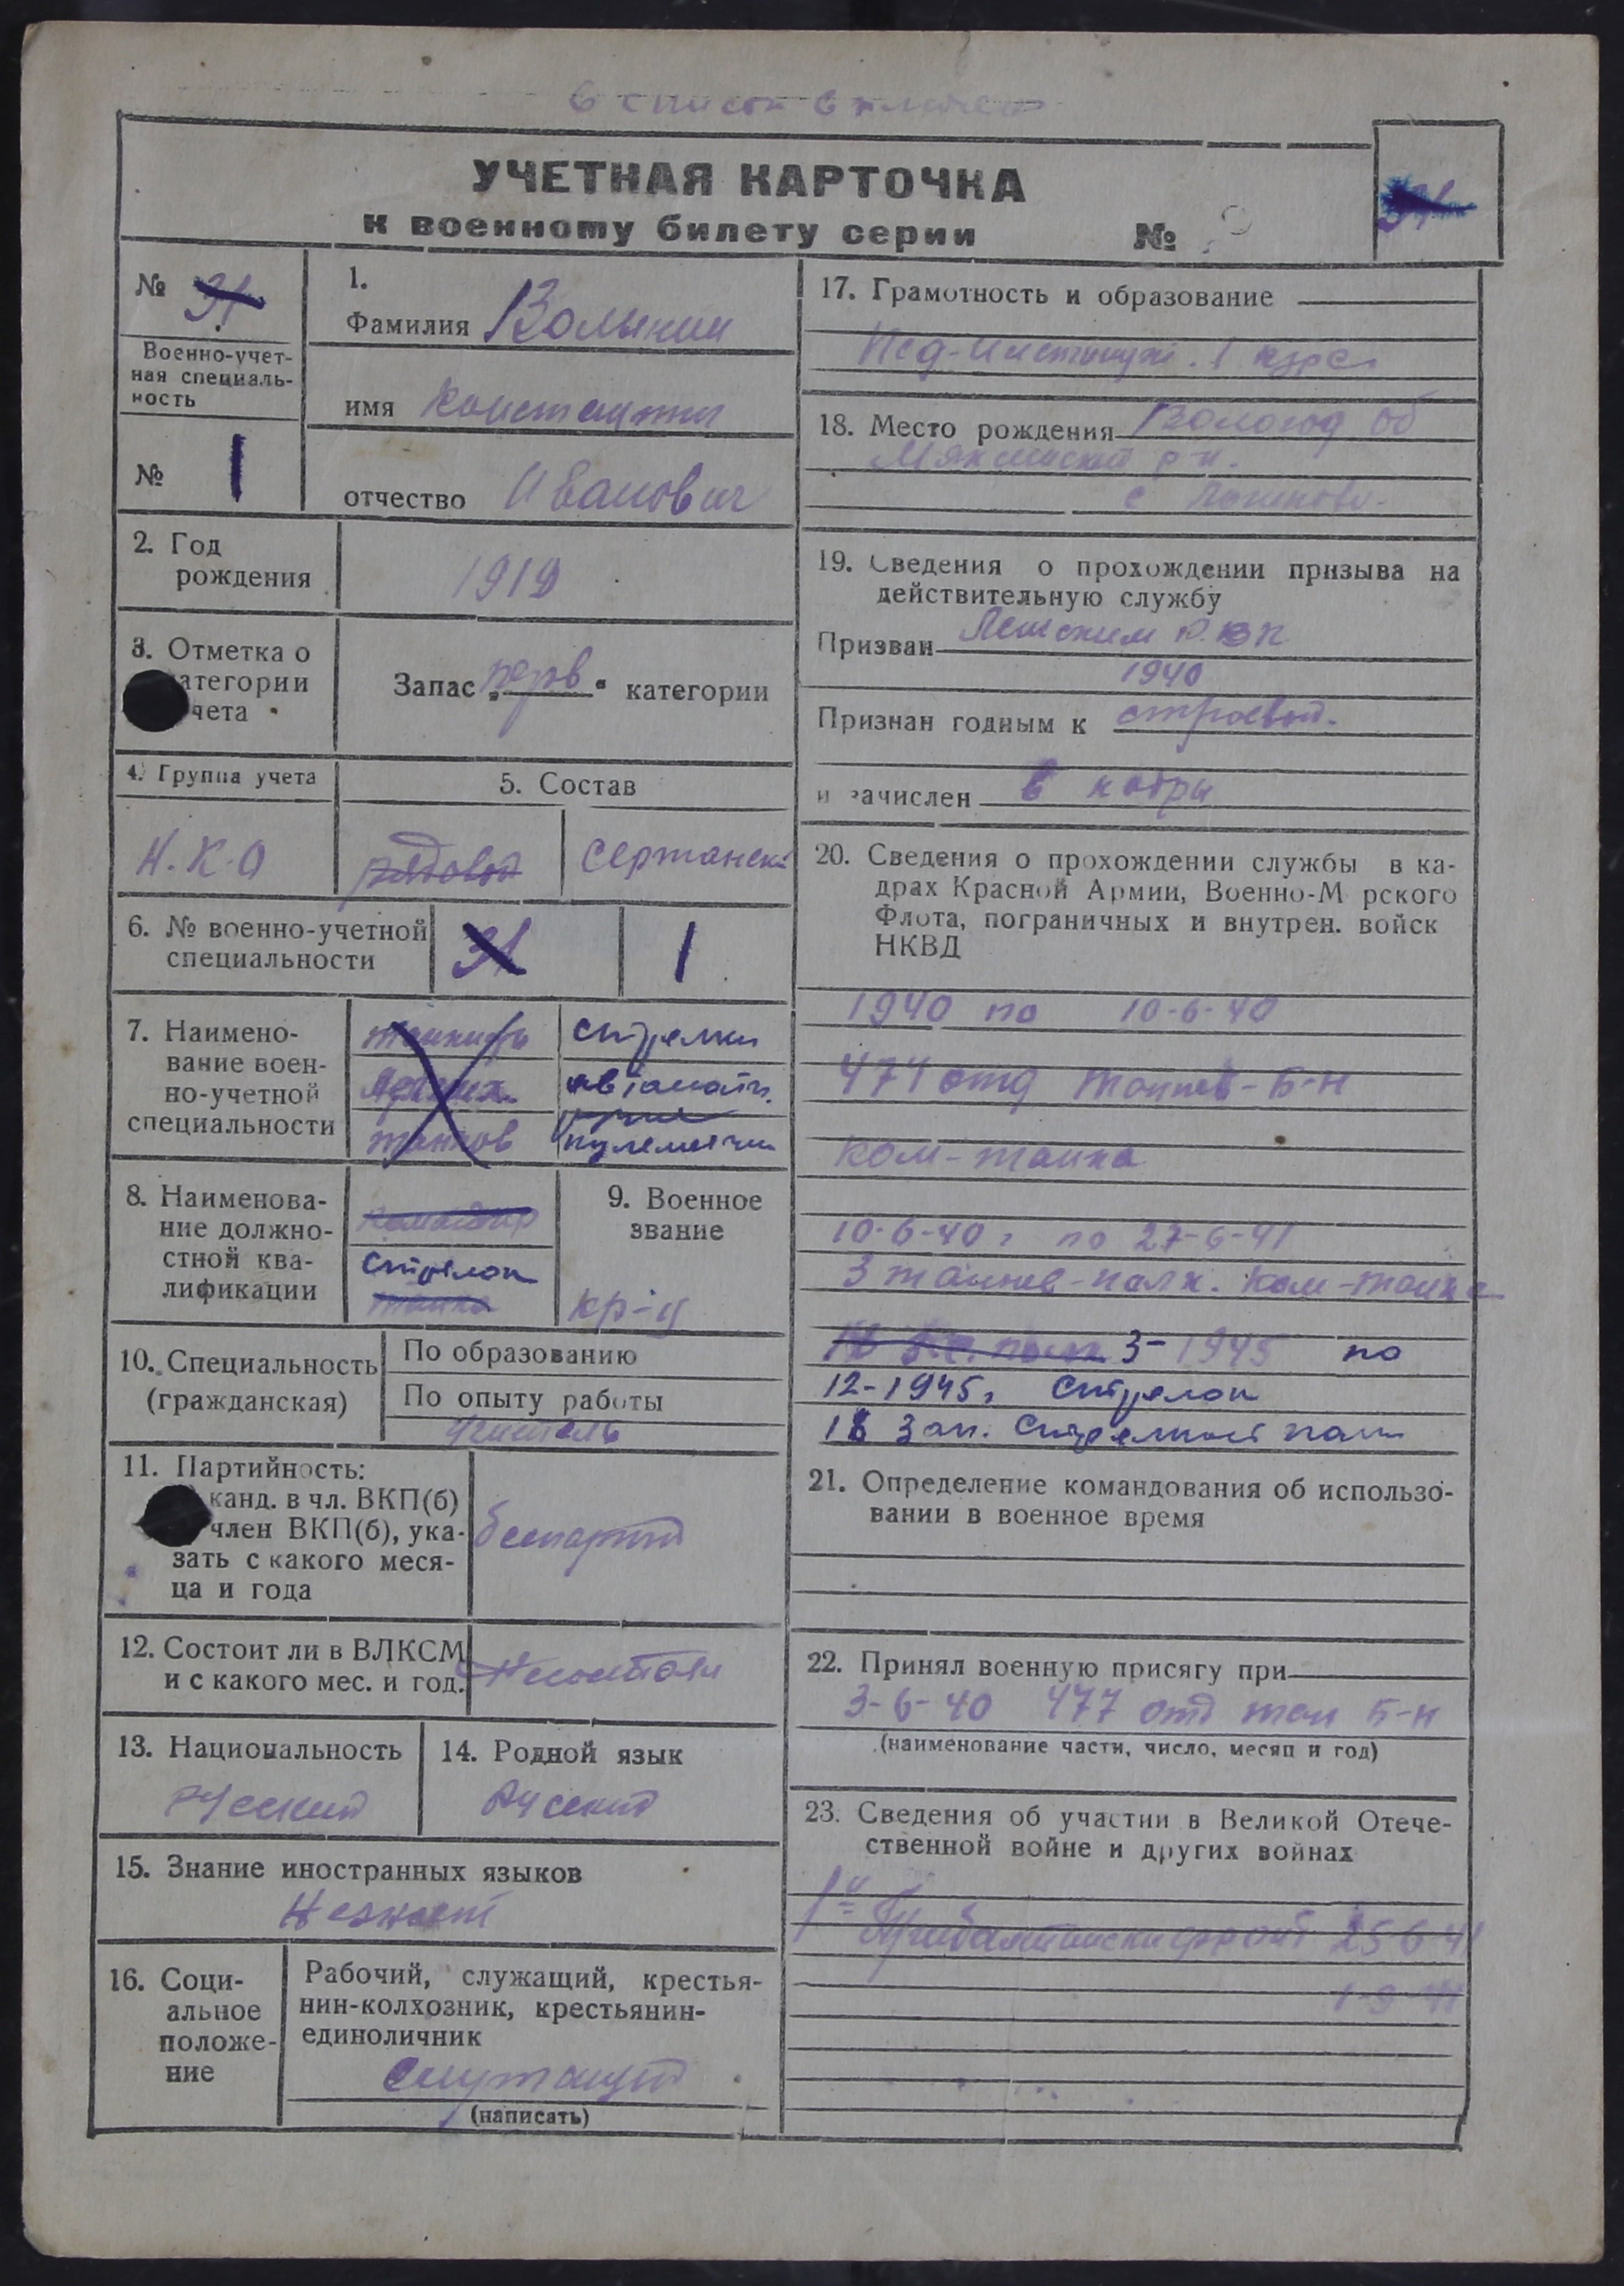 в список включен
УЧЕТНАЯ КАРТОЧКА
к военному билету серии №
№ 31
Военно-учет-
ная специаль-
ность
№ 1
1.
Фамилия Волынин
имя Константин
отчество Иванович
2. Год
рождения
1919
3. Отметка о
атегории
чета
Запас „перв“ категории
4. Группа учета
5. Состав
Н.К.О
рядовой
Сержанск
6. № военно-учетной
специальности
31
1
7. Наимено-
вание воен-
но-учетной
специальности
танкисты
танков
Стрелки
автоматч.
ручн
пулеметчи
8. Наименова-
ние должно-
стной ква-
лификации
командир
Стрелок
танка
9. Военное
звание
кр-ц
10. Специальность
(гражданская)
По образованию
По опыту работы
Учитель
11. Партийность:
канд. в чл. ВКП(б)
член ВКП(б), ука-
зать с какого меся-
ца и года
беспартий
12. Состоит ли в ВЛКСМ
и с какого мес. и год.
Несостоял
13. Национальность
русский
14. Родной язык
Русский
15. Знание иностранных языков
Незнает
16. Соци-
альное
положе-
ние
Рабочий, служащий, крестья-
нин-колхозник, крестьянин-
единоличник
Служащий
(написать)
17. Грамотность и образование
Пед-институт. 1 курс
18. Место рождения Вологод об
Мяксинский р-н.
с
19. Сведения о прохождении призыва на
действительную службу
Призван Р.ВК
1940
Признан годным к строевой.
и зачислен в кадры
20. Сведения о прохождении службы в ка-
драх Красной Армии, Военно-М рского
Флота, пограничных и внутрен. войск
НКВД
1940 по 10-6-40
474 отд танков-Б-Н
ком-танка
10-6-40 г по 27-6-41
3 танков-полк. ком-танка
3-1945 по
12-1945г Стрелок
18 Зап. Стрелкой полк
21. Определение командования об использо-
вании в военное время
22. Принял военную присягу при
3-6-40 477 отд тан Б-Н
(наименование части, число, месяц и год)
23. Сведения об участии в Великой Отече-
ственной войне и других войнах
1й Прибалтийски фронт 25-6-41
1-9-41